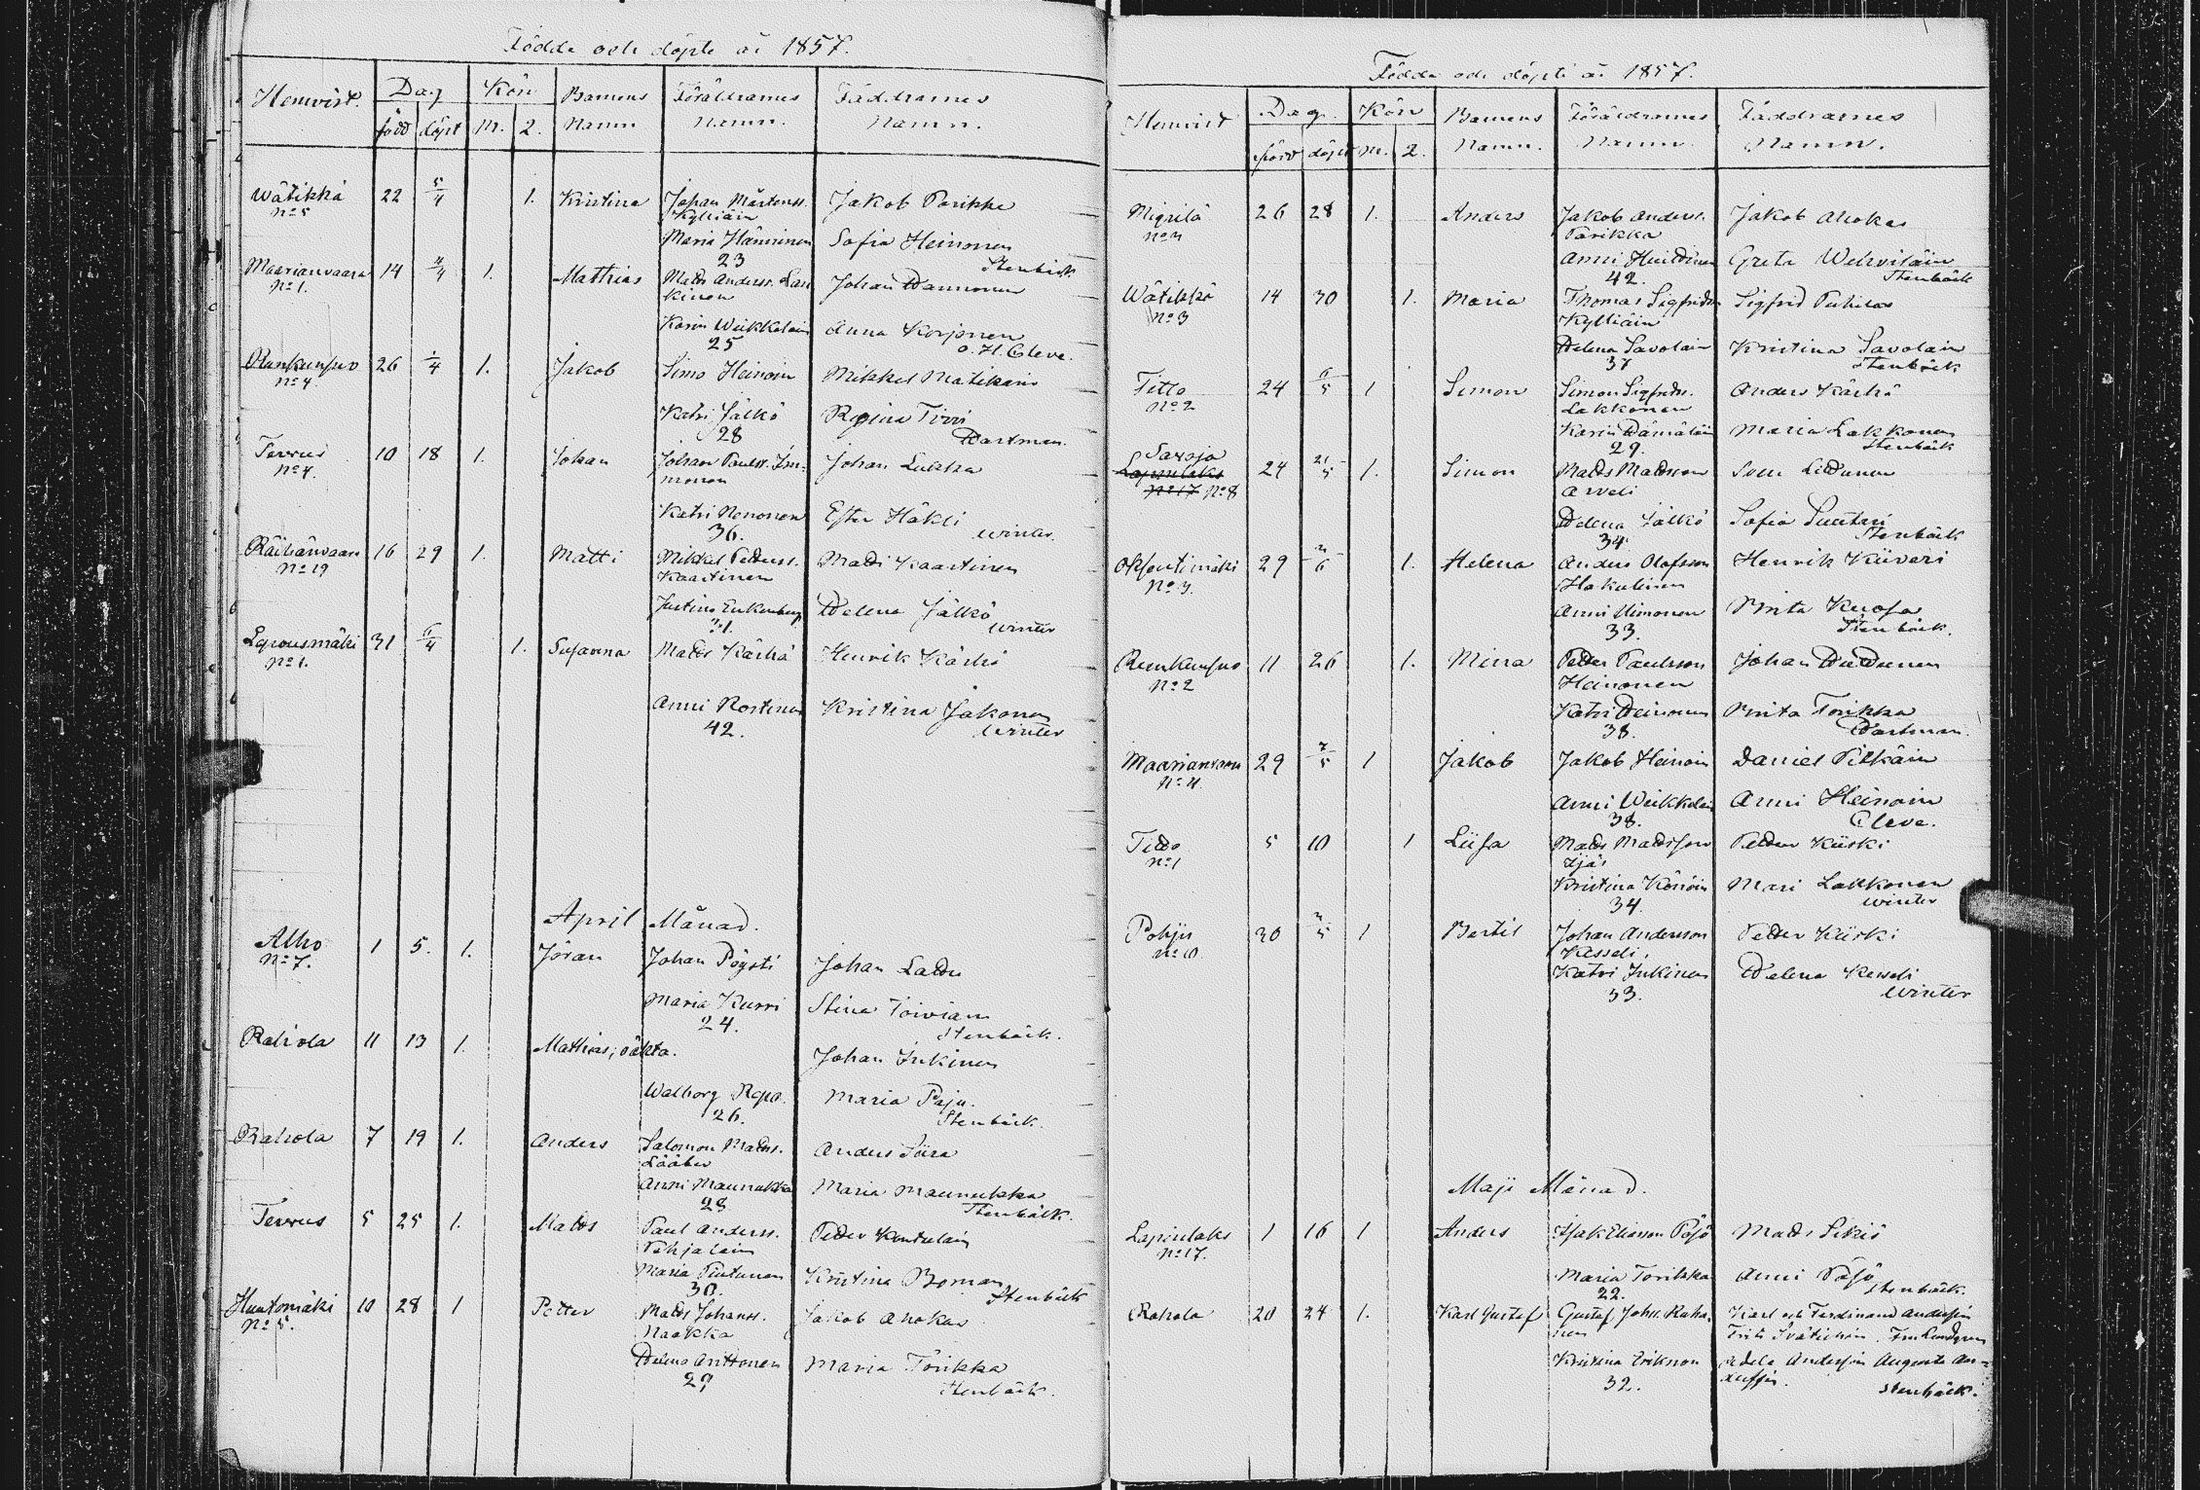 Födde och döpte år 1857.
Hemvist. Dag Kön Barnens Föräldrarnes Faddrarnes
född döpt M. 2. Namn Namn. Namn.
Wätikkä 22 5/4 1. Kristina Johan Mårtenss. Jakob Parikka
No 5 Kylliäin
Maria Hänninen Sofia Heinonen
23 Stenbäck
Maarianvaara 14 4/4 1. Mathias Mats Anderss. Johan
No 1. kinen
Karin Weikkolain Anna Korjonen
25 O. H. Cleve.
No 4. 26 /4 1. Jakob Simo Heinoin Mikkel
Katri Jälkö Regina Tirri
28 Hartman.
Tervus 10 18 1. Johan Johan Paulss. Im- Johan Lukka
No 4. monen
Katri Nenonen Ester Häkli
36. Winter.
Räihänvaara 16 29 1. Matti Mikkel Pederss. Matti Kaartinen
No 19 Kaartinen
Justina Helena Jälkö
31. Winter
31 6/4 1. Susanna Mats Kärhä Henrik Kärhä
No 1.
Anni Rostinen Kristina Jakonen
42. Winter
April Månad.
Alho 1 5. 1. Jöran Johan Pöysti Johan Lattu
No 7.
Maria Kurri Stina Toiviain
24. Stenbäck.
Rahola 11 13 1. Mathias, oäkta. Johan Inkinen
Walborg Repo Maria Paju.
26. Stenbäck.
Rahola 7 19 1. Anders Salomon Matss. Anders Siira
Lääber
Anni Maunukka Maria Maunukka
28 Stenbäck.
Tervus 5 25 1. Mats Paul Anderss. Peder
Pohjalain
Maria Kristina Boman
30. Stenbäck
Huutomäki 10 28 1 Petter Mats Johanss. Jakob Ahokas
No 5. Naakka
Helena Anttonen Maria Törikka
29 Stenbäck.
Födde och döpte år 1857.
Hemvist Dag. Kön Barnens Föräldrarnes Faddrarnes
född döpt M. 2. Namn. Namn. Namn.
Nigrilä 26 28 1. Anders Jakob Anderss. Jakob Ahokas
Parikka
Anni Greta Wehviläin
42. Stenbäck
Wätikkä 14 30 1. Maria Thomas Sigfridss. Sigfrid
No 3 Kylliäin
Helena Savolain Kristina Savolain
37 Stenbäck
Titto 24 6/5 1 Simon Simon Sigfridss. Anders Kärhä
No 2 Lakkonen
Karin Hämäläin Maria Lakkonen
29. Stenbäck
Saroja
Lapinlaks 24 21/5 1. Simon Mats Matsson
No 17 No 8 Arveli
Helena Jälkö Sofia
34. Stenbäck
29 2/6 1. Helena Anders Olofsson Henrik Kiiveri
No 3. Hakulinen
Anni Simonen Brita Kuosa
33. Stenbäck.
11 26 1. Mina Peder Paulsson Johan
No 2 Heinonen
Katri Heinonen Brita Torikka
38. Hartman.
Maarianvaara 29 7/5 1 Jakob Jakob Heinoin Daniel Pitkäin
No 4.
Anni Weikkolain Anni Heinoin
38. Cleve.
Titto 5 10 1 Liisa Mats Matsson Peder Kiiski
No 1 Äijäs
Kristina Mari Lakkonen
34. Winter
Pohjis 30 2/5 1 Bertil Johan Andersson Peder Kiiski
No 10 Kesseli.
Katri Inkinen Helena Kesseli
33. Winter
Maji Månad.
Lapinlaks 1 16 1 Anders Isak Eliasson Päjö Mats Sikiö
No 17.
Maria Torikka Anni Päjö
22. Stenbäck.
Rahola 20 24 1. Karl Gustaf Gustaf Johss. Raha- Karl och Ferdinand Andersin
nen
Kristina Eriksson Adele Andersin Augusta An-
32. Stenbäck.